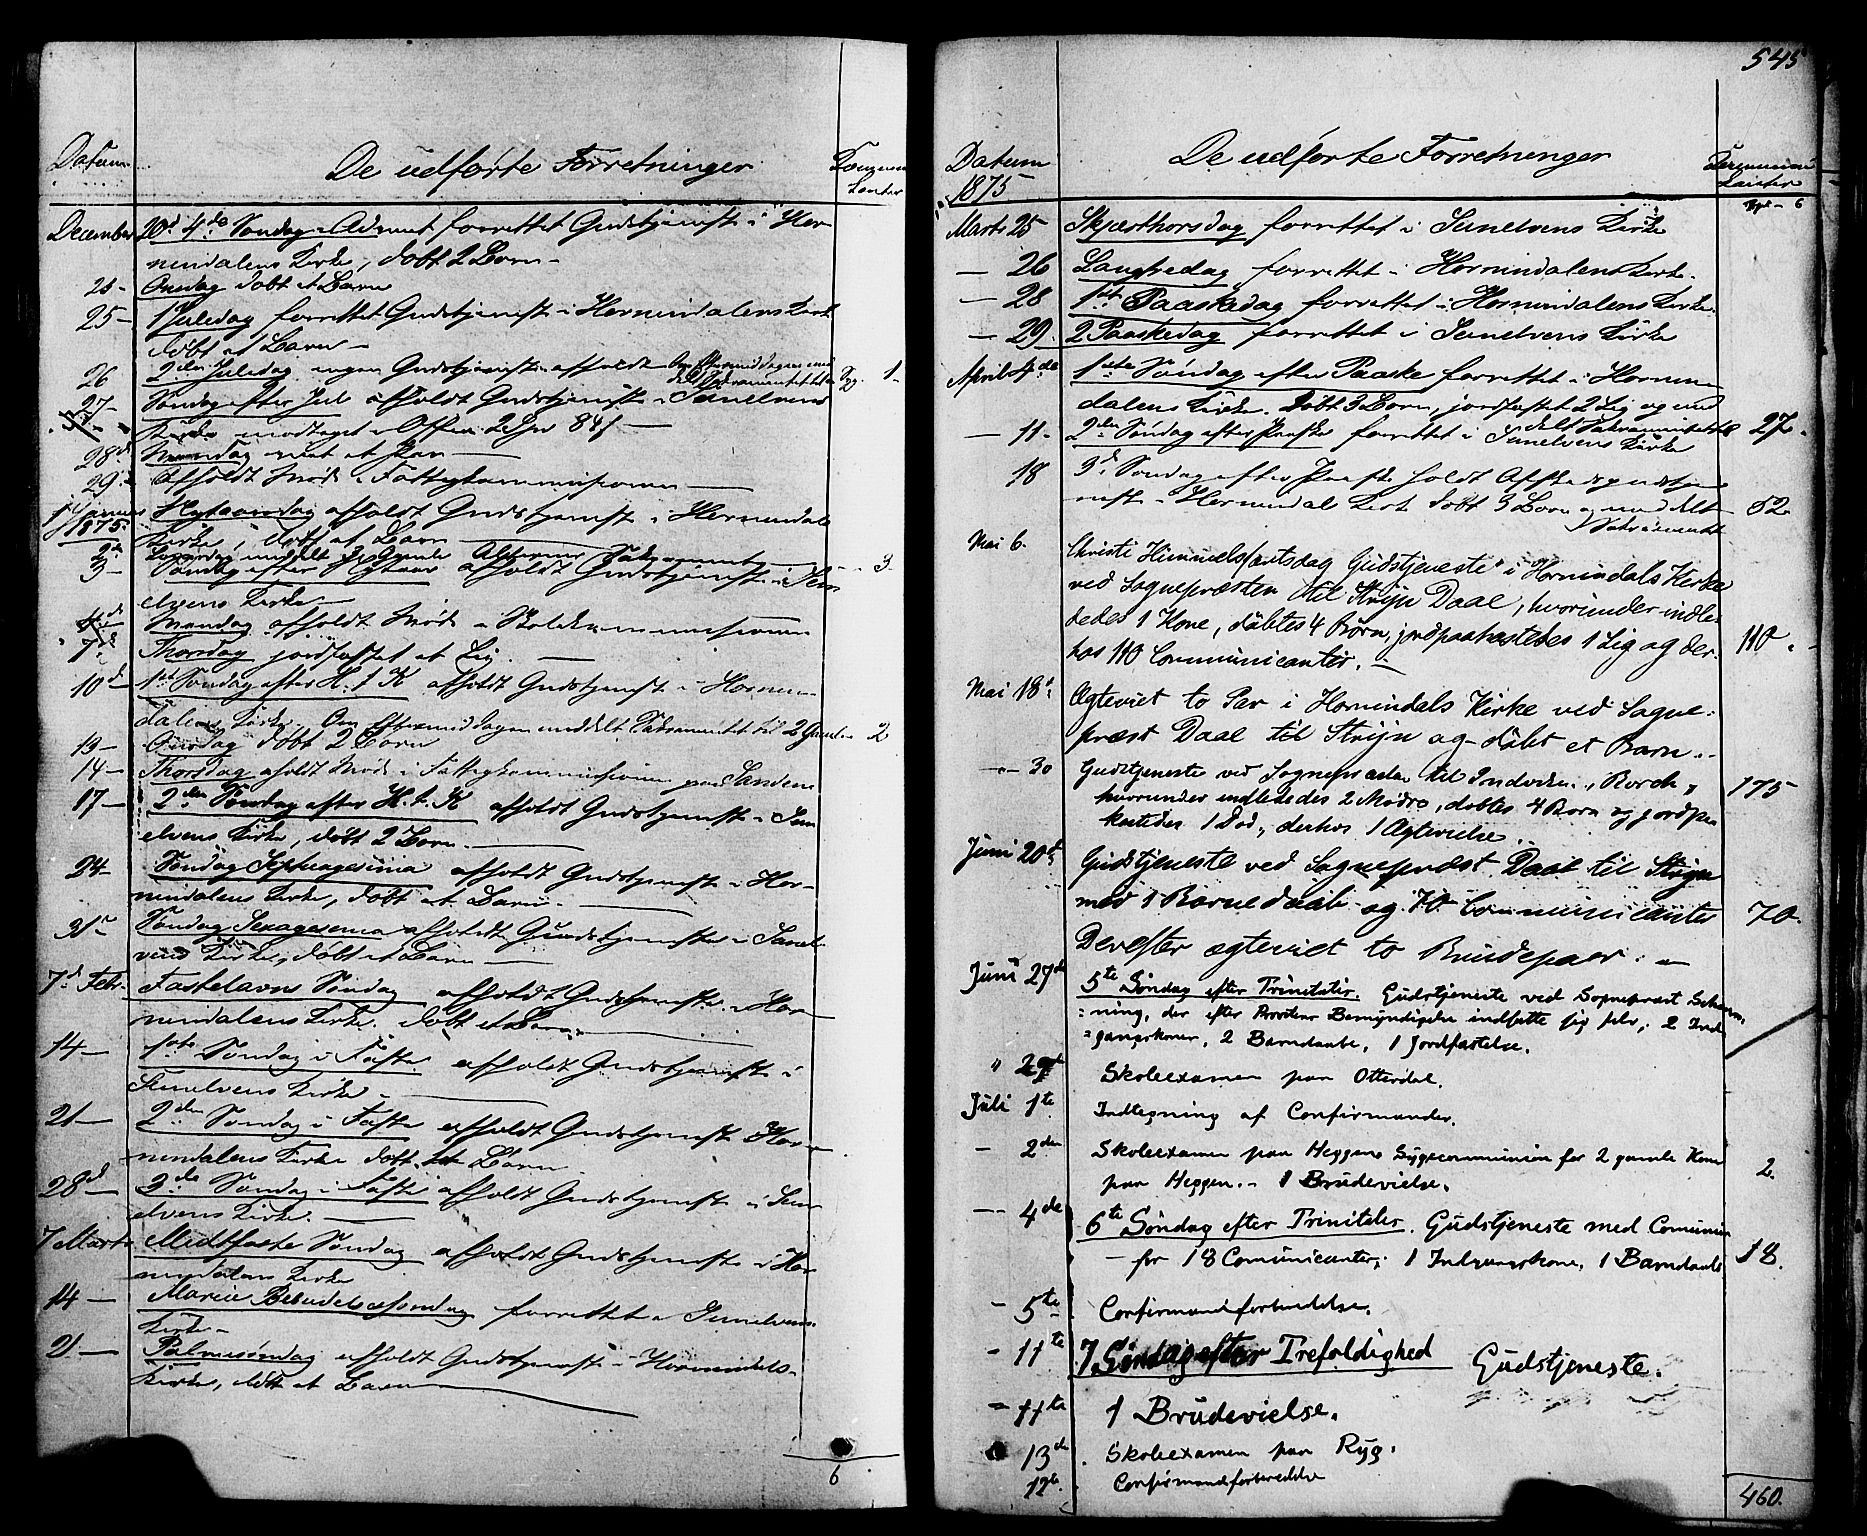 Datum
De udførte Forretninger
December 20d 4de Søndag i Advent forrettet Gudstjeneste i Hor
nindalens Kirke, døbt 2 Børn –
Onsdag døbt et Barn
25 – 1 Juledag forrettet Gudstjeneste i Hornindalens Kirke
døbt et Barn –
26 2den Juledag ingen Gudstjeneste afholdt 1
27 – Søndag efter Jul afholdt Gudstjeneste i Sunelvens
Kirke modtaget i Offer
28d Mandag
29 – Afholdt Møde i Fattigkommissionen
1 Januar 1875 Nytaarsdag afholdt Gudstjeneste i Hornindals
Kirke, døbt et Barn
Sakrament 3
3 – Søndag efter Nytaar afholdt Gudstjeneste i Sun
elvens Kirke –
4d Mandag afholdt Møde i Skolekommissionen
7d Thorsdag jordfæstet et Lig. –
10d 1ste Søndag efter H. 3 K afholdt Gudstjeneste i Hornin
dalens Kirke. Om Eftermiddagen meddelt Sakramentet til 2 Gamle 2
13 – Onsdag døbt 2 Børn
14 – Thorsdag afholdt Møde i Fattigkommissionen paa
17 – 2den Søndag efter H. 3. K afholdt Gudstjeneste i Sun
elvens Kirke, døbt 2 Børn. –
24 – Søndag Septuagesima afholdt Gudstjeneste i Hor
nindalens Kirke, døbt et Barn. –
31te Søndag Sexagesima afholdt Gudstjeneste i Sunel
vens Kirke, døbt et Barn –
7d Febr Fastelavns Søndag afholdt Gudstjeneste i Hor
nindalens Kirke. døbt et Barn
14 – 1ste Søndag i Faste afholdt Gudstjeneste i
Sunelvens Kirke –
21 – 2den Søndag i Faste afholdt Gudstjeneste i Hor
nindalens Kirke døbt et Barn
28d – 3die Søndag i Faste afholdt Gudstjeneste i Sun
elvens Kirke. –
7 Marts Midtfaste Søndag afholdt Gudstjeneste i Hor
nindalens Kirke
14 – Mariæ Bebudelsessøndag forrettet i Sunelvens
Kirke –
21 – Palmesøndag afholdt Gudstjeneste i Hornindals
Kirke, døbt et Barn
6
545
Datum
1875
De udførte Forretninger
6
Marts 25 Skjærthorsdag forrettet i Sunelvens Kirke
– 26 Langfredag forrettet i Hornindalens Kirke.
– 28 1ste Paaskedag forrettet i Hornindalens Kirke.
– 29. 2 Paaskedag forrettet i Sunelvens Kirke
April 4de 1ste Søndag efter Paaske forrettet i Hornin
dalens Kirke. Døbt 3 Børn, jordfæstet 2 Lig og med
delt Sakramentet 27
– 11 – 2den Søndag efter Paaske forrettet i Sunelvens Kirke
18 3d Søndag efter Paaske holdt Afskedsgudstje
neste i Hornindal Kirke døbt 3 Børn og meddelt 52
Sakramentet
Mai 6. Christi Himmelfartsdag Gudstjeneste i Hornindals Kirke
ved Sognepræsten til Stryn Daae, hvorunder indle
dedes 1 Kone, døbtes 4 Børn, jordpaakastedes 1 Lig og der
hos 110 Communicanter. – 110
Mai 18d Ægteviet to Par i Hornindals Kirke ved Sogne:
præst Daae til Stryn og døbt et Barn. –
– 30 Gudstjeneste ved Sognepræsten til Indviken, Borch, 175
hvorunder indlededes 2 Mødre, døbtes 4 Børn og jordpaa
kastedes 1 Død, derhos 1 Ægtevielse.
Juni 20d Gudstjeneste ved Sognepræst Daae til Stryn
med 1 Barnedaab og 70 Communicanter 70.
Derefter ægteviet to Brudepaer. –
Juni 27de 5te Søndag efter Trinitatis. Gudstjeneste ved Sognepræst
ning, der efter Provstens Bemyndigelse indsatte sig selv; 2 Ind
gangskoner, 2 Barnedaabe, 1 Jordfæstelse.
" 29de Skoleexamen paa Otterdal.
Juli 1te Indtegning af Confirmander.
– 2den Skoleexamen paa Heggen. Sygecommunion for 2 gamle Koner 2.
paa Heggen. – 1 Brudevielse.
– 4de 6te Søndag efter Trinitatis. Gudstjeneste med Comunion
– for 18 Comunicanter; 1 Indgangskone, 1 Barnedaab 18.
– 5te Confirmandforberedelse.
– 11te 7. Søndag efter Trefoldighed Gudstjeneste.
– 11te 1 Brudevielse.
13de Skoleexamen paa Ryg.
12te Confirmandforberedelse
460.